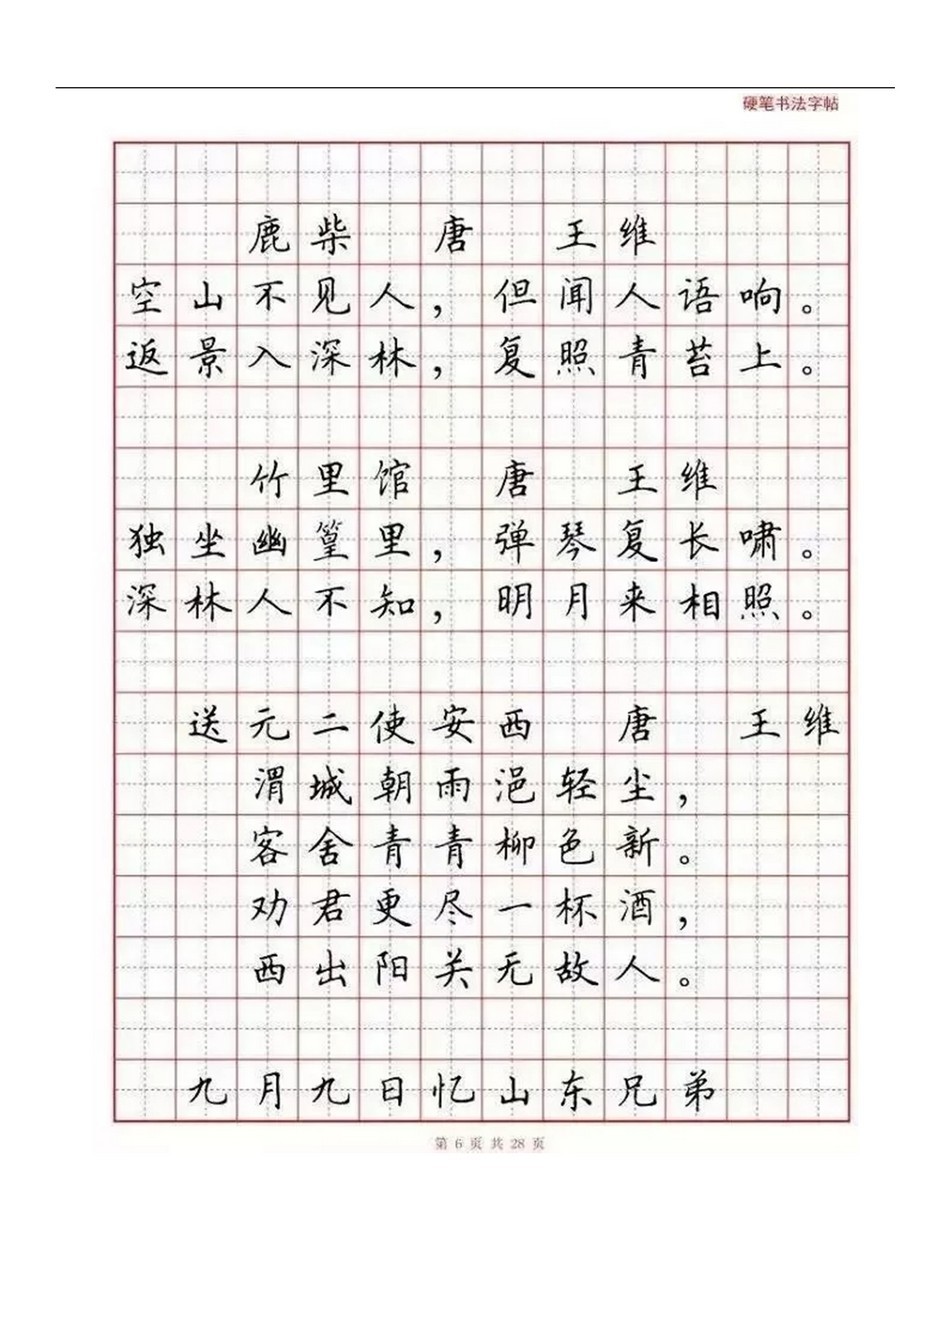 硬笔书法字帖
鹿柴 唐 王维
空山不见人，但闻人语响。
返景入深林，复照青苔上。
竹里馆 唐 王维
独坐幽篁里，弹琴复长啸。
深林人不知，明月来相照。
送元二使安西 唐 王维
渭城朝雨浥轻尘，
客舍青青柳色新。
劝君更尽一杯酒，
西出阳关无故人。
九月九日忆山东兄弟
第 6 页 共 28 页